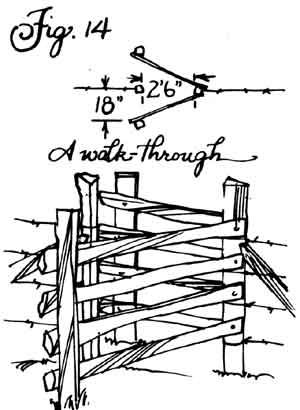 Fig. 14
2'6"
18"
A walk-through